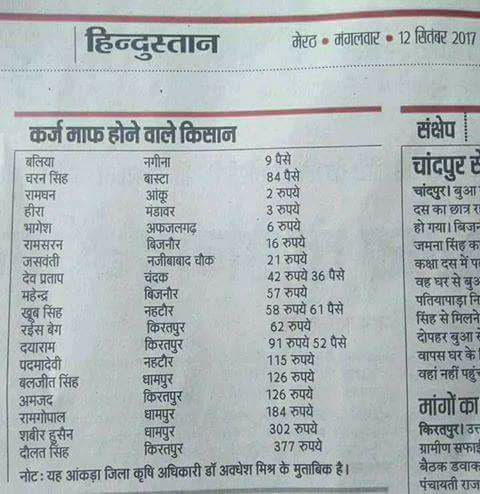 हिन्दुस्तान
मेरठ • मंगलवार • 12 सितंबर 2017
कर्ज माफ होने वाले किसान
बलिया नगीना 9 पैसे
चरन सिंह बास्टा 84 पैसे
रामधन आंकू 2 रुपये
हीरा मंडावर 3 रुपये
भागेश अफजलगढ़ 6 रुपये
रामसरन बिजनौर 16 रुपये
जसवंती नजीबाबाद चौक 21 रुपये
देव प्रताप चंदक 42 रुपये 36 पैसे
महेन्द्र बिजनौर 57 रुपये
खूब सिंह नहटौर 58 रुपये 61 पैसे
रईस बेग किरतपुर 62 रुपये
दयाराम किरतपुर 91 रुपये 52 पैसे
पदमादेवी नहटौर 115 रुपये
बलजीत सिंह धामपुर 126 रुपये
अमजद किरतपुर 126 रुपये
रामगोपाल धामपुर 184 रुपये
शबीर हुसैन धामपुर 302 रुपये
दौलत सिंह किरतपुर 377 रुपये
नोट: यह आंकड़ा जिला कृषि अधिकारी डॉ अवधेश मिश्र के मुताबिक है।
संक्षेप
चांदपुर से
चांदपुर। बुआ
दस का छात्र
हो गया।
जमना सिंह
कक्षा दस में
वह घर से
पतियापाड़ा
सिंह से मिलने
दोपहर बुआ
वापस घर के
वहां नहीं
मांगों का
किरतपुर।
ग्रामीण सफाई
बैठक
पंचायती राज